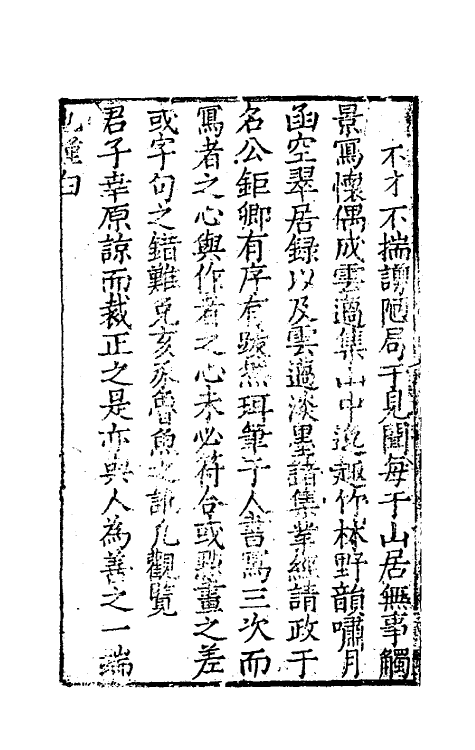 不才不揣謭陋局于見聞每于山居無事觸
景寫懷偶成雲邁集山中逸趣竹林野韻嘯月
函空翠居録以及雲邁淡墨諸集業經請政于
名公鉅卿有序有跋然珥筆于人書寫三次而
寫者之心與作者之心未必符合或㸃畫之差
或字句之錯難免亥豕魯魚之訛凡觀覧
君子幸原諒而裁正之是亦與人為善之一端
也 白